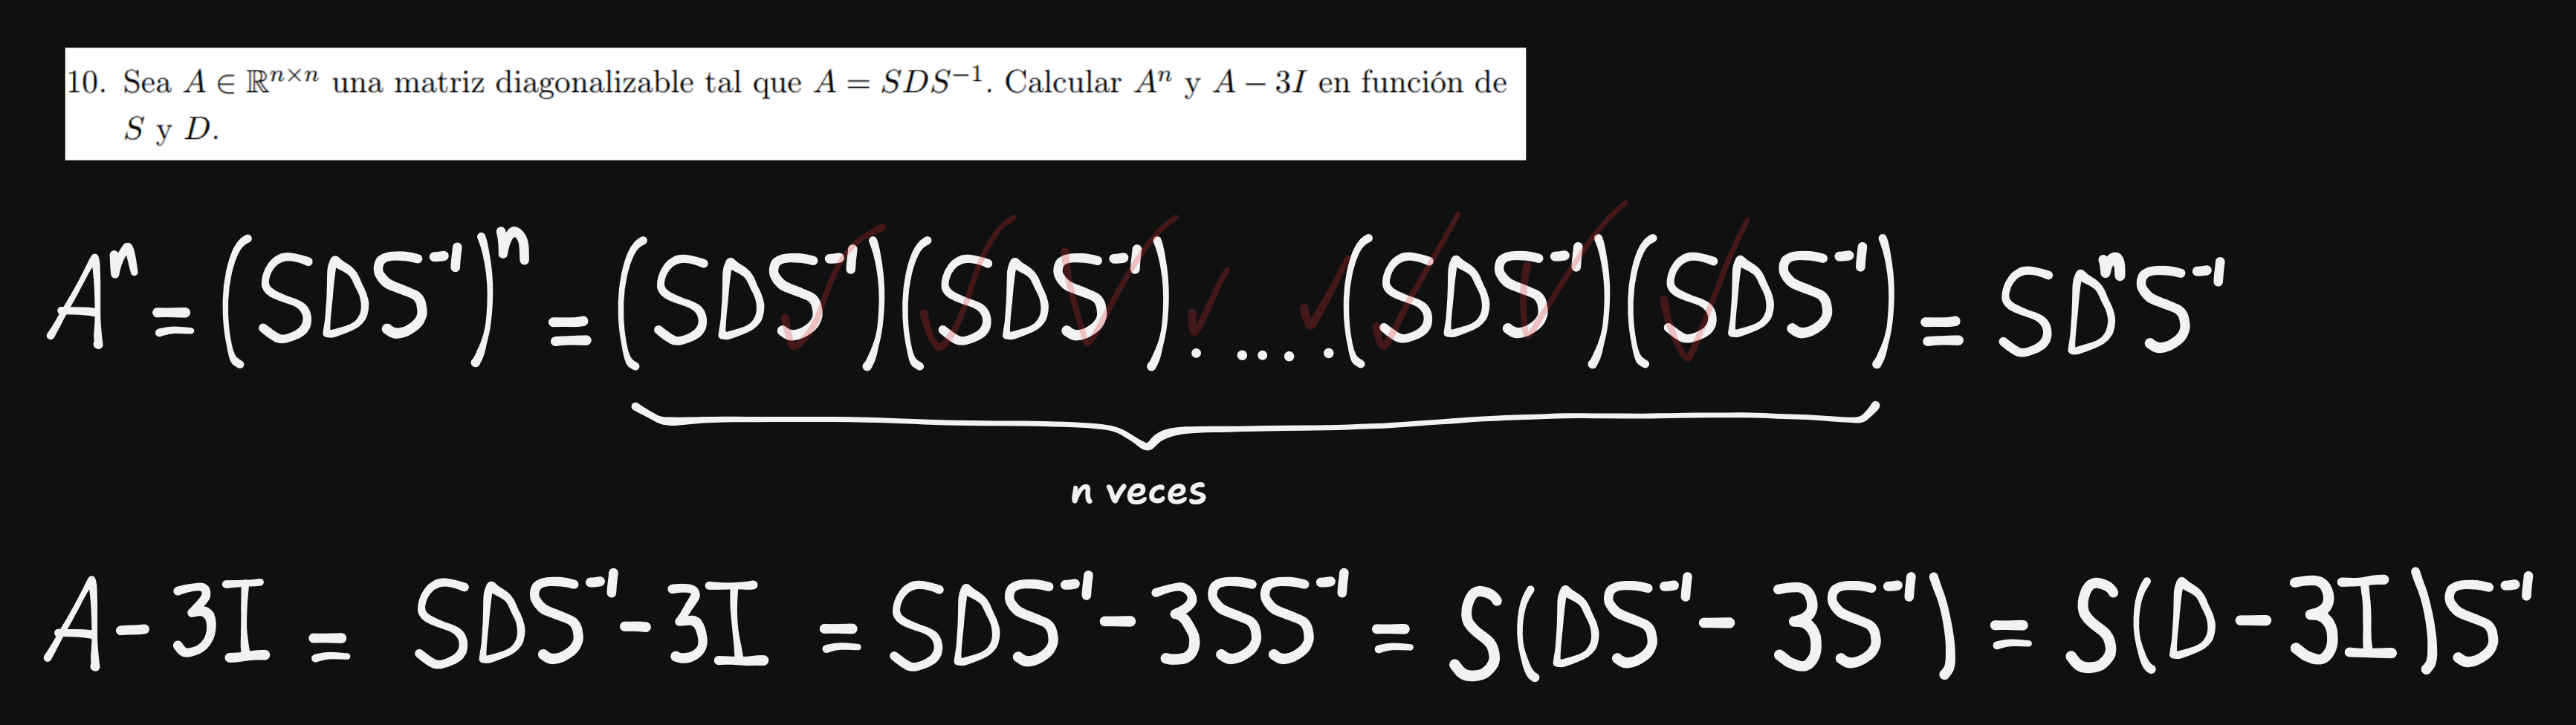 10. Sea A ∈ ℝⁿˣⁿ una matriz diagonalizable tal que A = SDS⁻¹. Calcular Aⁿ y A − 3I en función de
S y D.
Aⁿ = (SDS⁻¹)ⁿ = (SDS⁻¹)(SDS⁻¹). ... .(SDS⁻¹)(SDS⁻¹) = SDⁿS⁻¹
n veces
A − 3I = SDS⁻¹ − 3I = SDS⁻¹ − 3SS⁻¹ = S(DS⁻¹ − 3S⁻¹) = S(D − 3I)S⁻¹